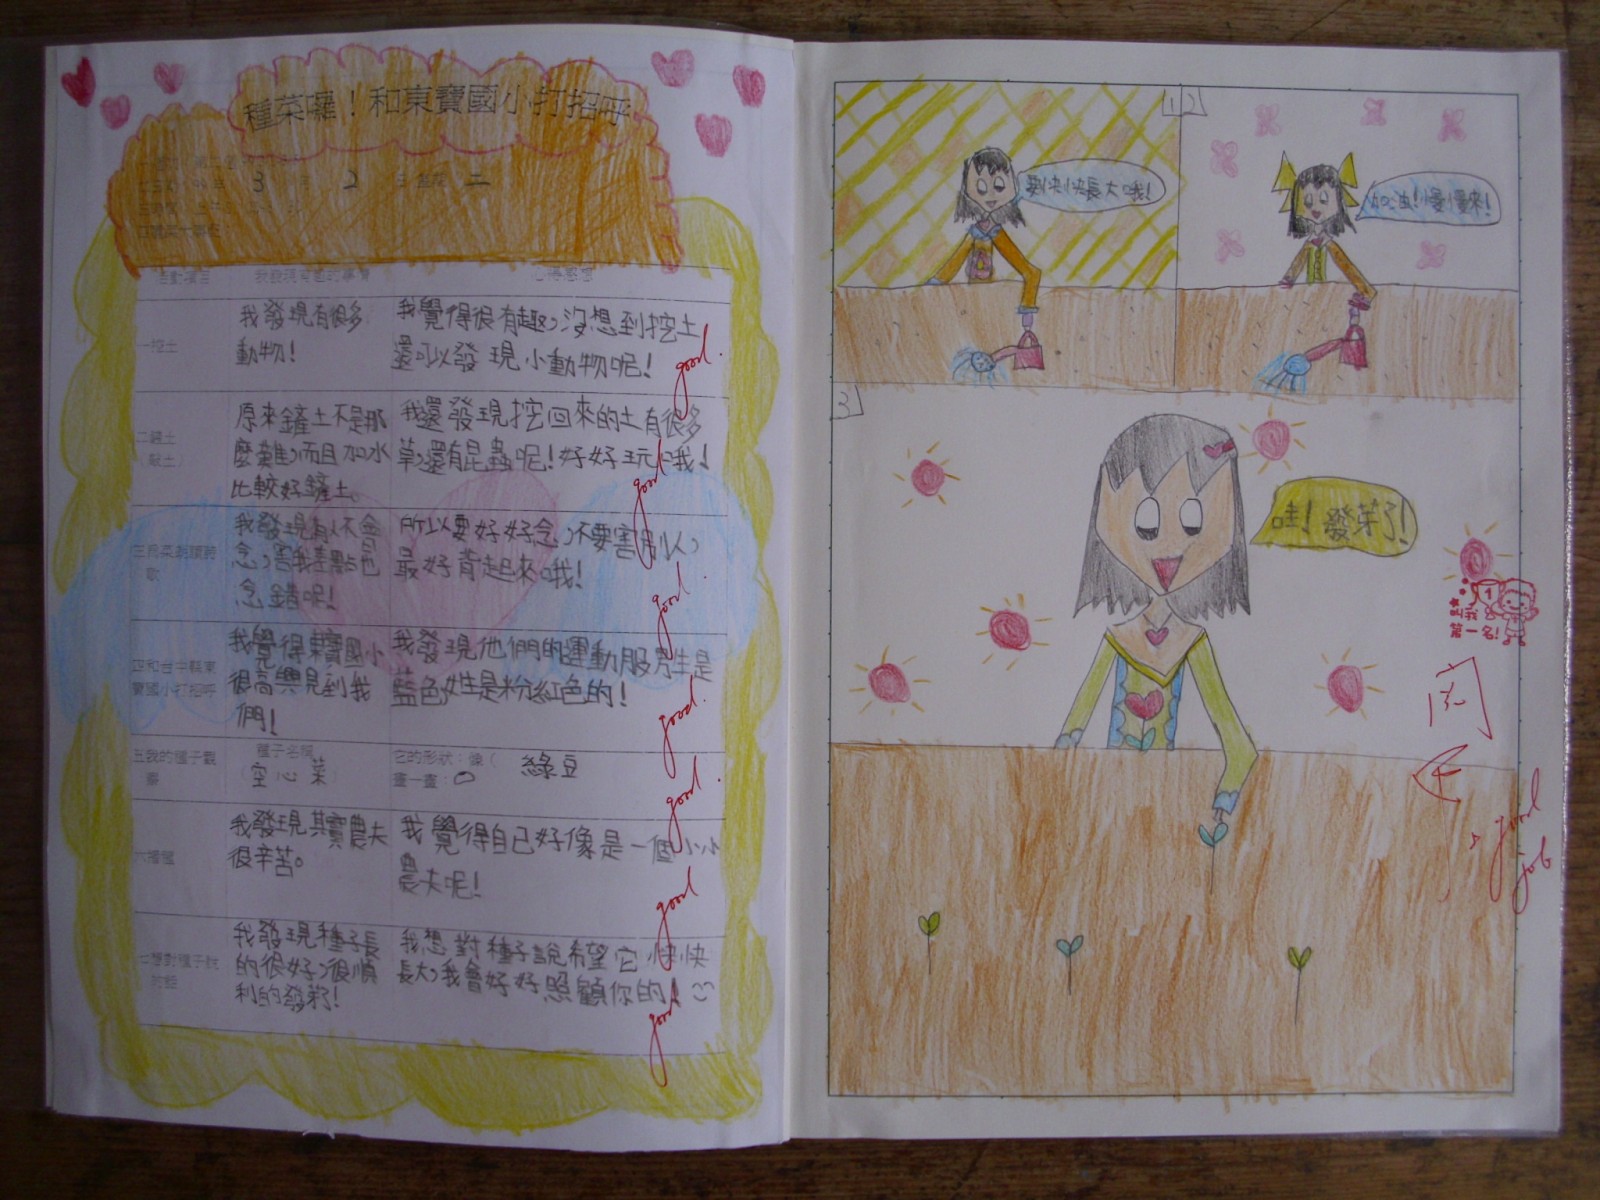 種菜囉！和東寶國小打招呼
3 2 二
活動項目 我發現有趣的事情 心得感想
一挖土
我發現有很多
動物！
我覺得很有趣，沒想到挖土
還可以發現小動物呢！
good.
原來鏟土不是那
麼難，而且加水
比較好鏟土。
我還發現挖回來的土有很多
草，還有昆蟲呢！好好玩哦！
good
我發現有人不會
念，害我差點也
念錯呢！
所以要好好念，不要害別人，
最好背起來哦！
good.
四和台中縣東
寶國小打招呼
我覺得東寶國小
很高興見到我
們！
我發現他們的運動服男生是
藍色，女生是粉紅色的！
good.
五我的種子觀
察
種子名稱
（空心菜）
它的形狀：像（ 綠豆
畫一畫：
good
六播種
我發現其實農夫
很辛苦。
我覺得自己好像是一個小小
農夫呢！
good
七想對種子說
的話
我發現種子長
的很好，很順
利的發芽！
我想對種子說希望它快快
長大，我會好好照顧你的！
good
1
要快快長大哦！
2
加油！慢慢來！
3
哇！發芽了！
1
叫我
第一名！
good
job